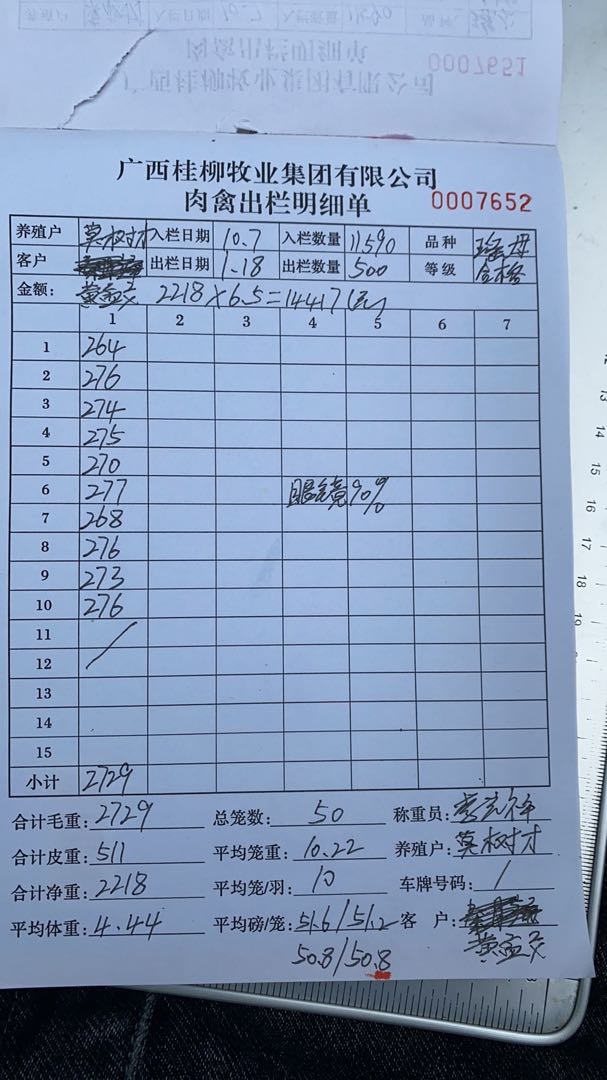 0007651
广西桂柳牧业集团有限公司
肉禽出栏明细单 0007652
养殖户 莫树才 入栏日期 10.7 入栏数量 11590 品种 瑶母
客户 出栏日期 1.18 出栏数量 500 等级 合格
金额: 2218×6.5=14417(元)
1 2 3 4 5 6 7
1 264
2 276
3 274
4 275
5 270
6 277 眼镜90%
7 268
8 276
9 273
10 276
11
12
13
14
15
小计 2729
合计毛重: 2729 总笼数: 50 称重员:
合计皮重: 511 平均笼重: 10.22 养殖户: 莫树才
合计净重: 2218 平均笼/羽: 10 车牌号码: /
平均体重: 4.44 平均磅/笼: 51.6/51.2 客 户:
50.8/50.8